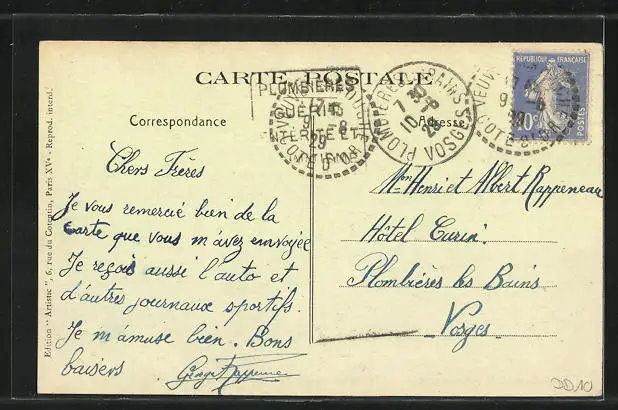 CARTE POSTALE
Correspondance
Adresse
PLOMBIÈRES
GUÉRIT
ENTÉRITE ET
PLOMBIÈRES LES BAINS
VOSGES
7
10 - 8
29
9 - 8
29
CÔTE D'OR
RÉPUBLIQUE FRANÇAISE
POSTES
Chers Frères
Je vous remercie bien de la
carte que vous m'avez envoyée
Je reçois aussi l'auto et
d'autres journaux sportifs.
Je m'amuse bien. Bons
baisers
George Rappeneau
Mon Henri et Albert Rappeneau
Hôtel
Plombières les Bains
Vosges
Edition "Artistic", 6, rue du Cotentin, Paris XVe - Reprod. interd.
DD10